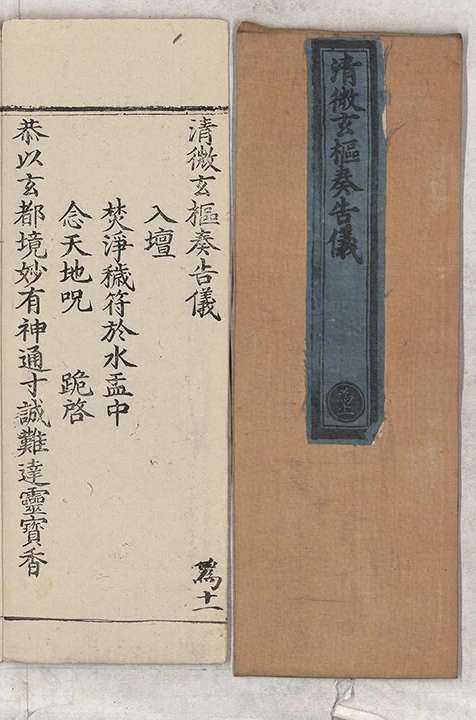 清微玄樞奏告儀
清微玄樞奏告儀 爲十一
入壇
焚淨穢符於水盂中
念天地呪 跪啓
恭以玄都境妙有神通寸誠難達靈寳香